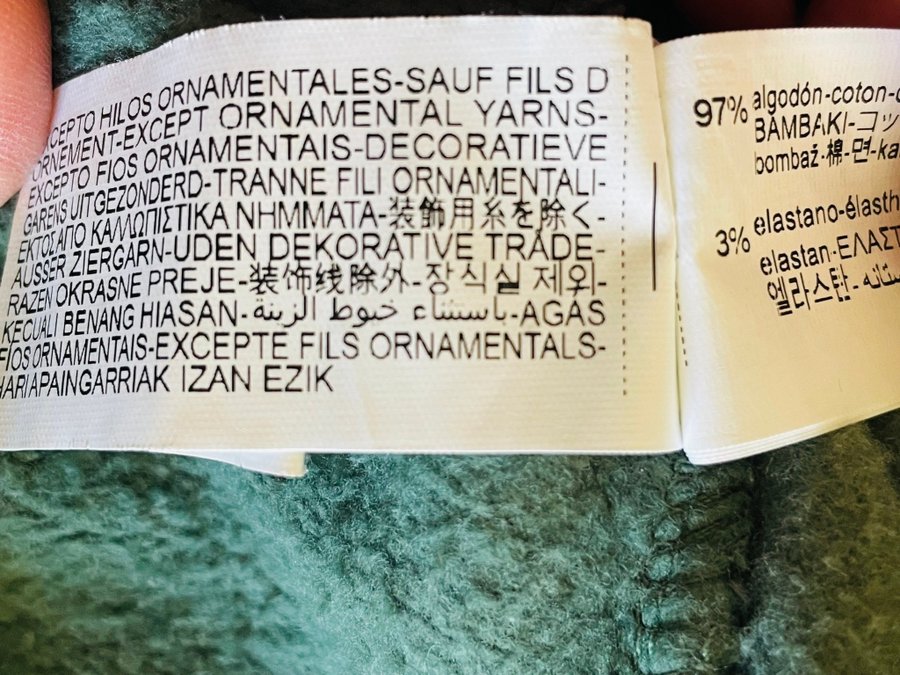 EXCEPTO HILOS ORNAMENTALES-SAUF FILS D
ORNEMENT-EXCEPT ORNAMENTAL YARNS-
EXCEPTO FIOS ORNAMENTAIS-DECORATIEVE
GARENS UITGEZONDERD-TRANNE FILI ORNAMENTALI-
ΕΚΤΟΣ ΑΠΟ ΚΑΛΛΩΠΙΣΤΙΚΑ ΝΗΜΜΑΤΑ-装飾用糸を除く-
AUSSER ZIERGARN-UDEN DEKORATIVE TRÅDE-
RAZEN OKRASNE PREJE-装饰线除外-장식실 제외-
KECUALI BENANG HIASAN-باستثناء خيوط الزينة-AGAS
FIOS ORNAMENTAIS-EXCEPTE FILS ORNAMENTALS-
HARI APAINGARRIAK IZAN EZIK
97% algodón-coton-c
BAMBAKI-コッ
bombaž-棉-면-ka
3% elastano-élasth
elastan-ΕΛΑΣΤ
엘라스탄-